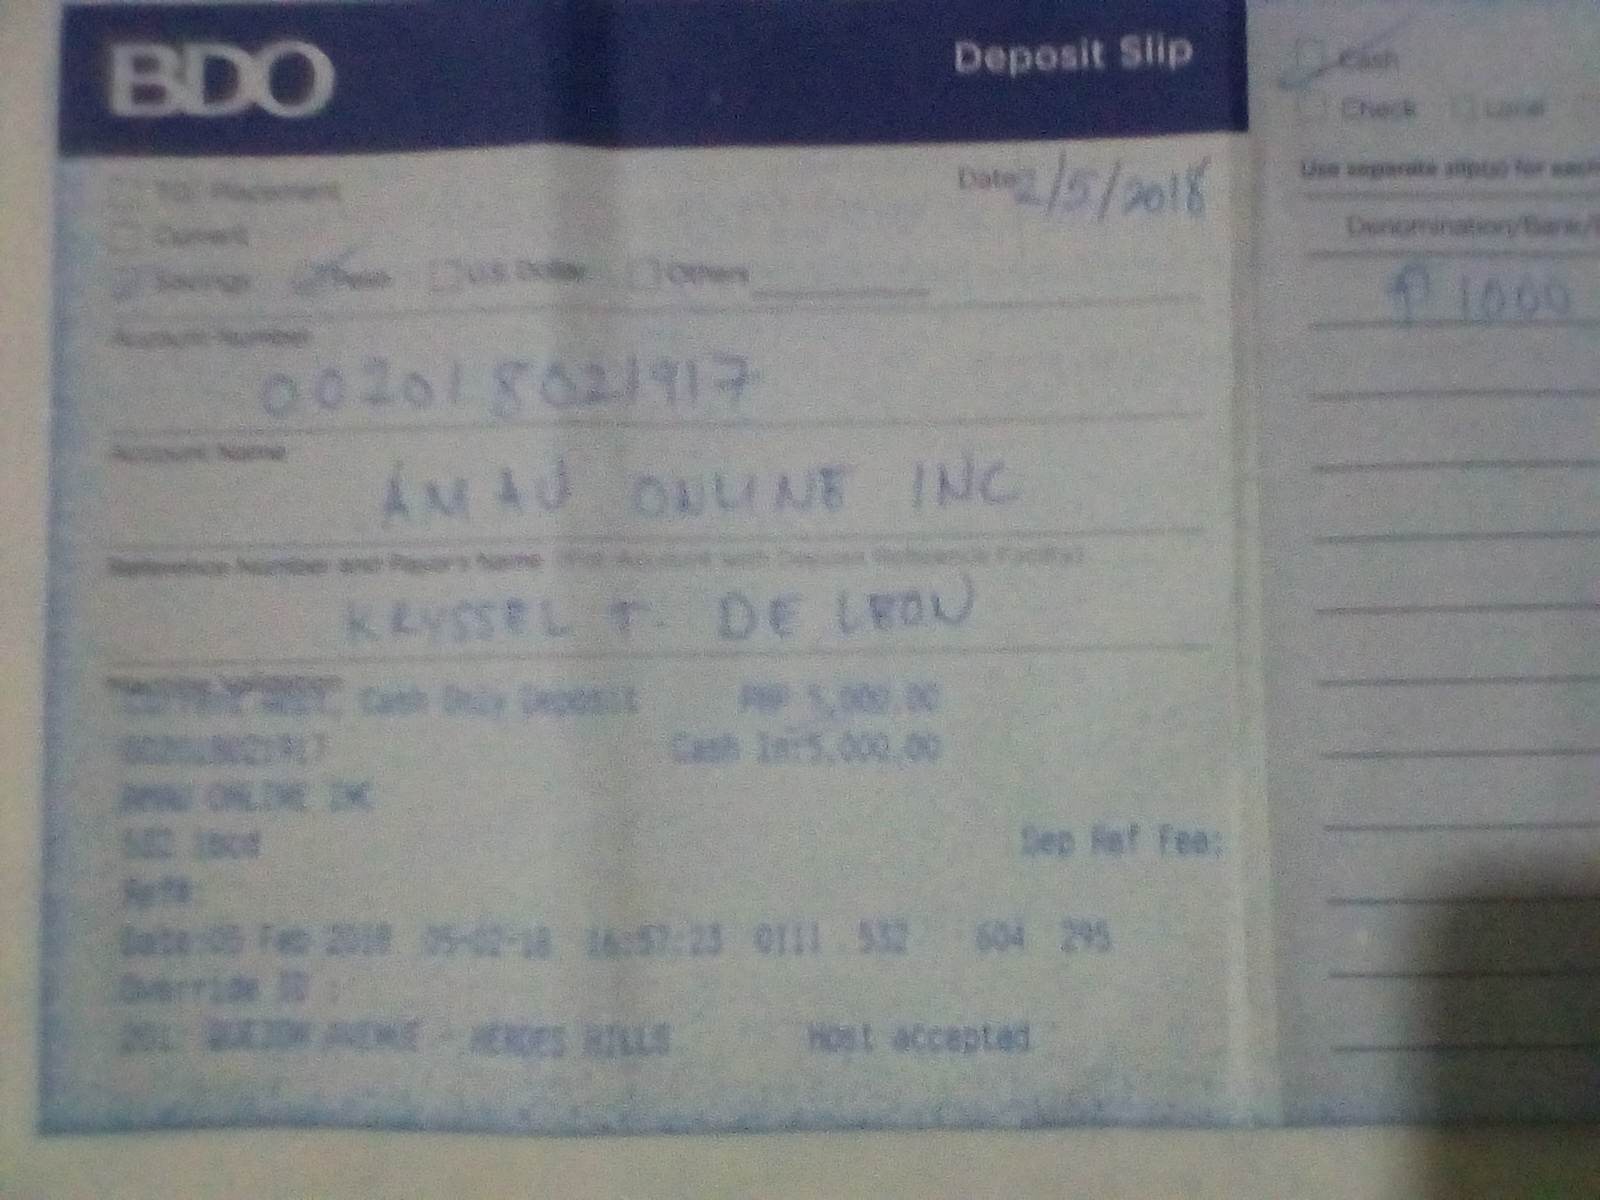 BDO
Deposit Slip
Date 2/5/2018
Current
Savings Peso U.S. Dollar Others
Account Number
002018021917
Account Name
AMAU ONLINE INC
Reference Number and Payor's Name (For Account with Deposit Reference Facility)
KRYSSEL T. DE LEON
Machine Validation
Cash Only Deposit PHP 5,000.00
002018021917 Cash In:5,000.00
AMAU ONLINE INC
Dep Ref Fee:
Ref#:
Date:05 Feb 2018 05-02-18 16:57:23 0111 532 604 295
Override ID :
201 QUEZON AVENUE - HEROES HILLS Host accepted
Cash
Check Local
Use separate slip(s) for each
Denomination/Bank/
₱ 1000